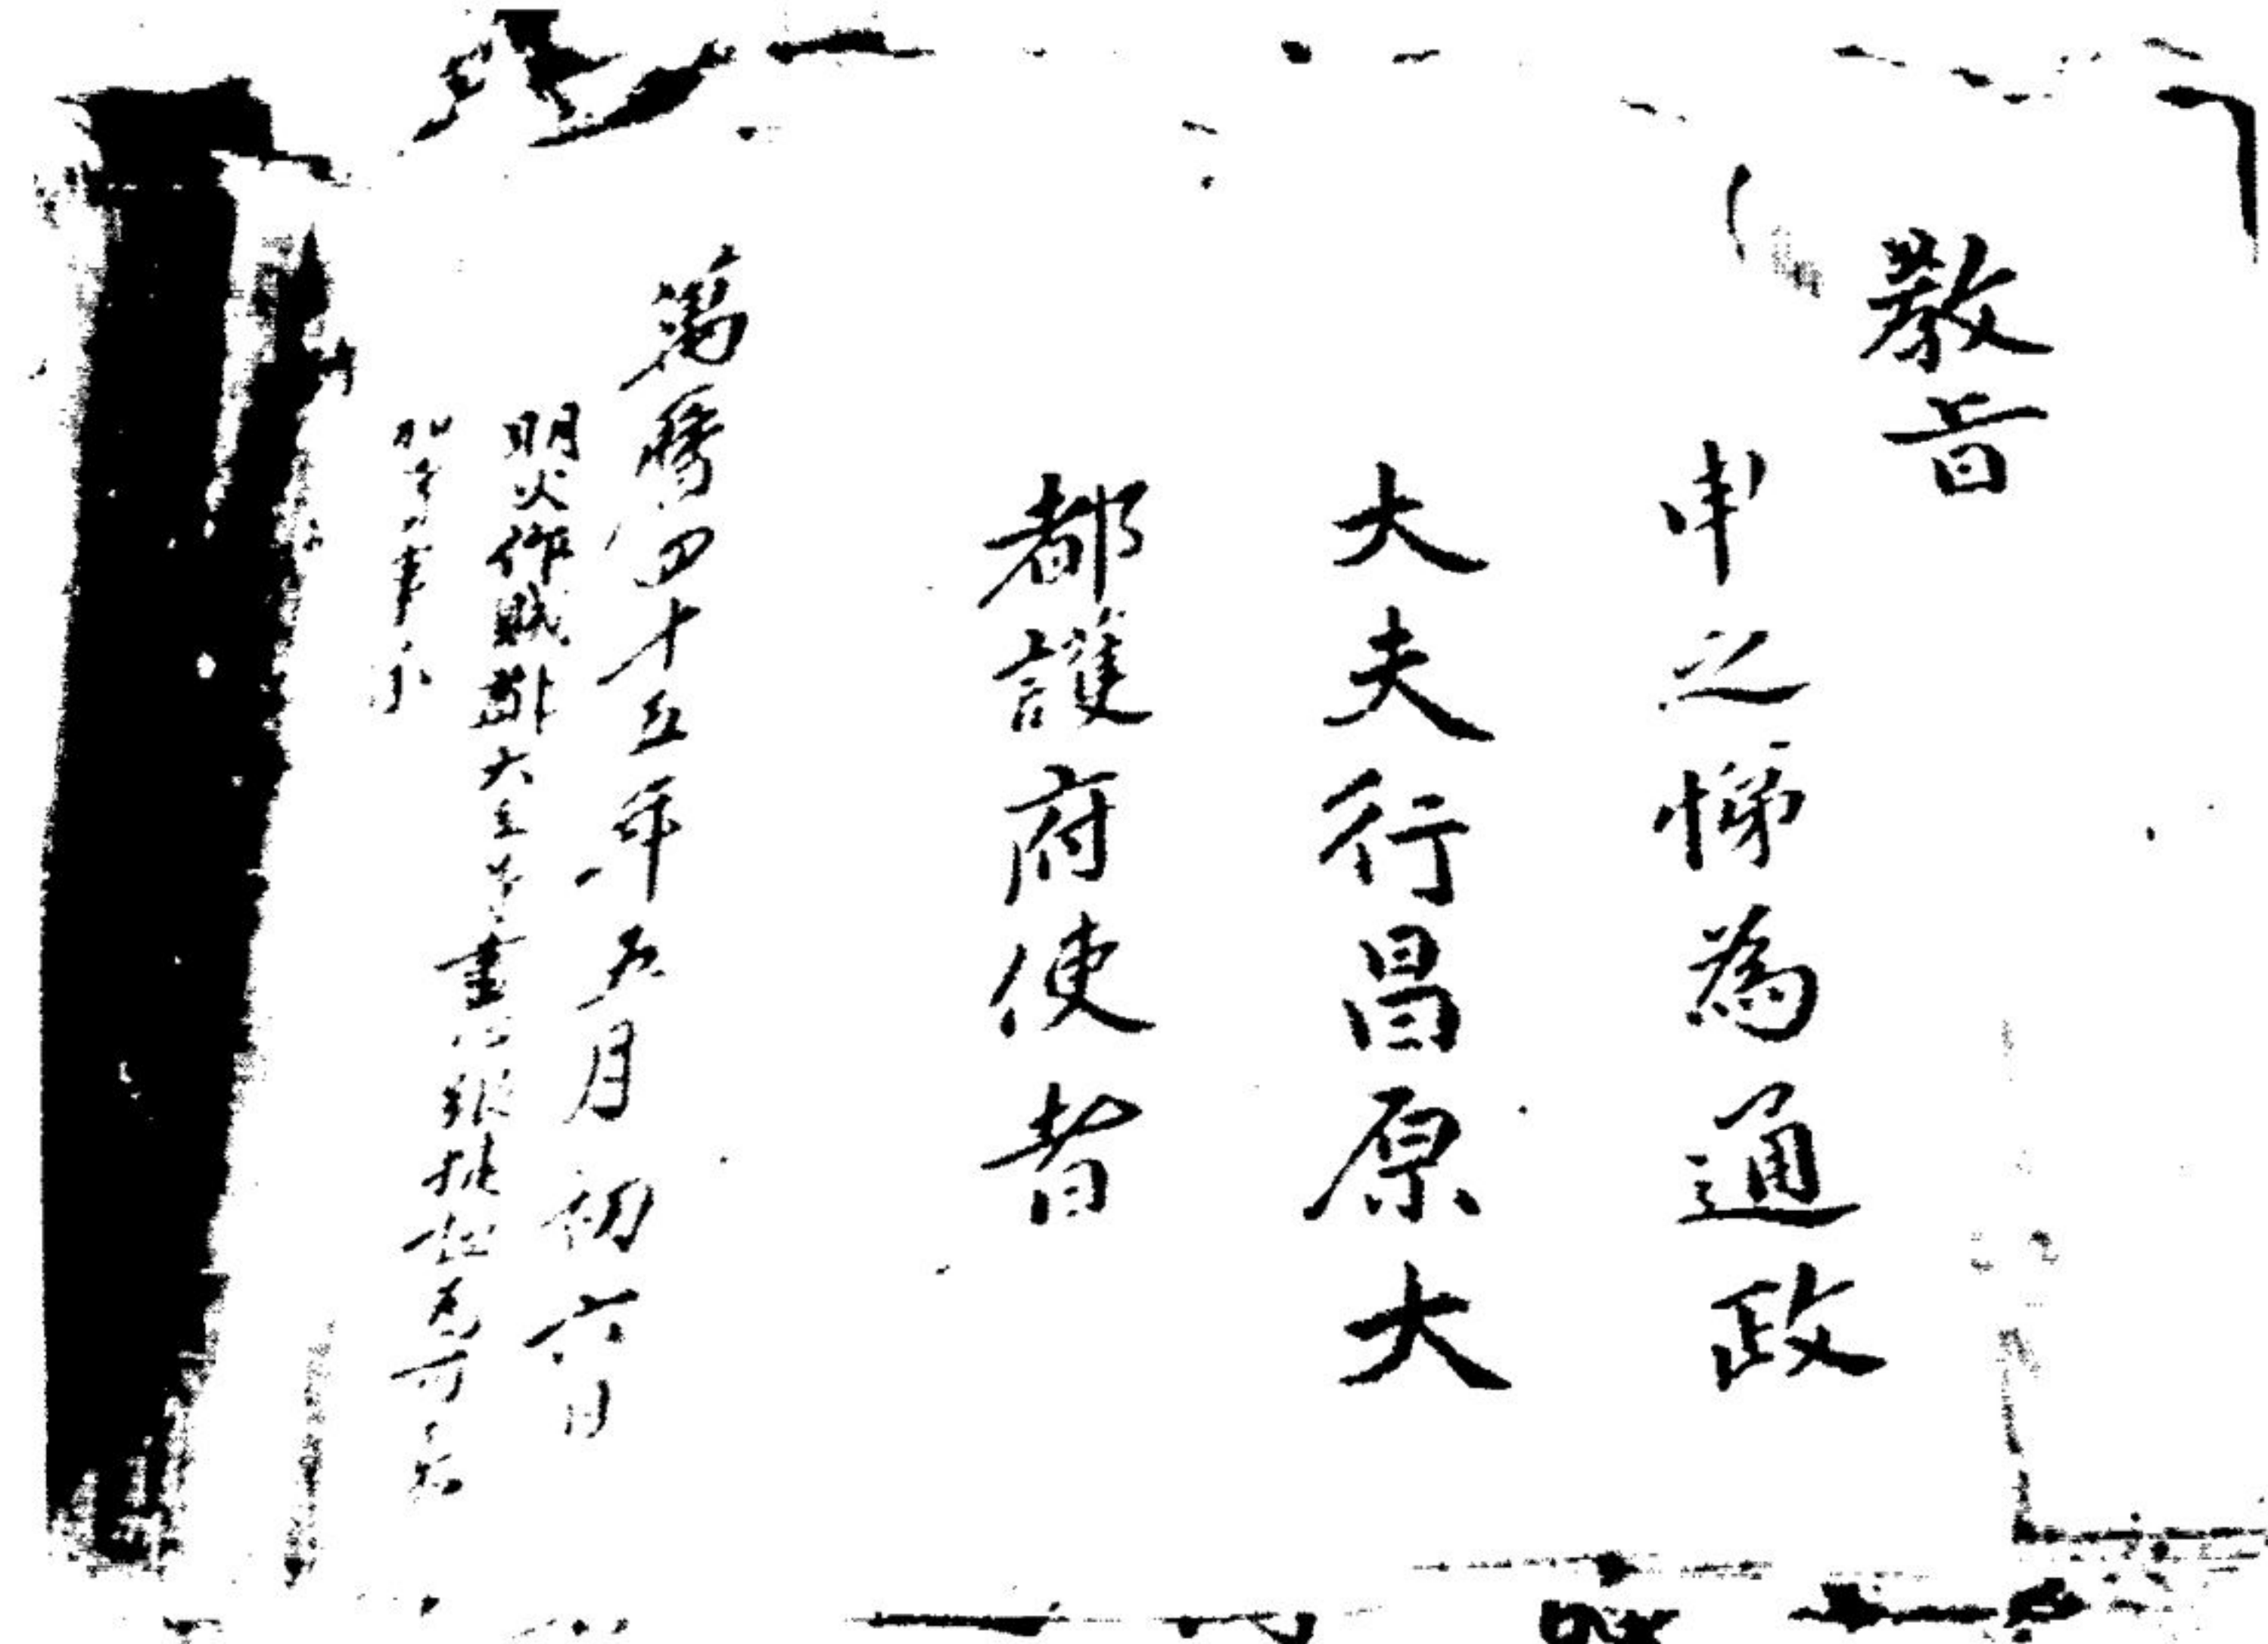 敎旨
申之悌為通政
大夫行昌原大
都護府使者
萬曆四十五年五月初六日
明火作賊